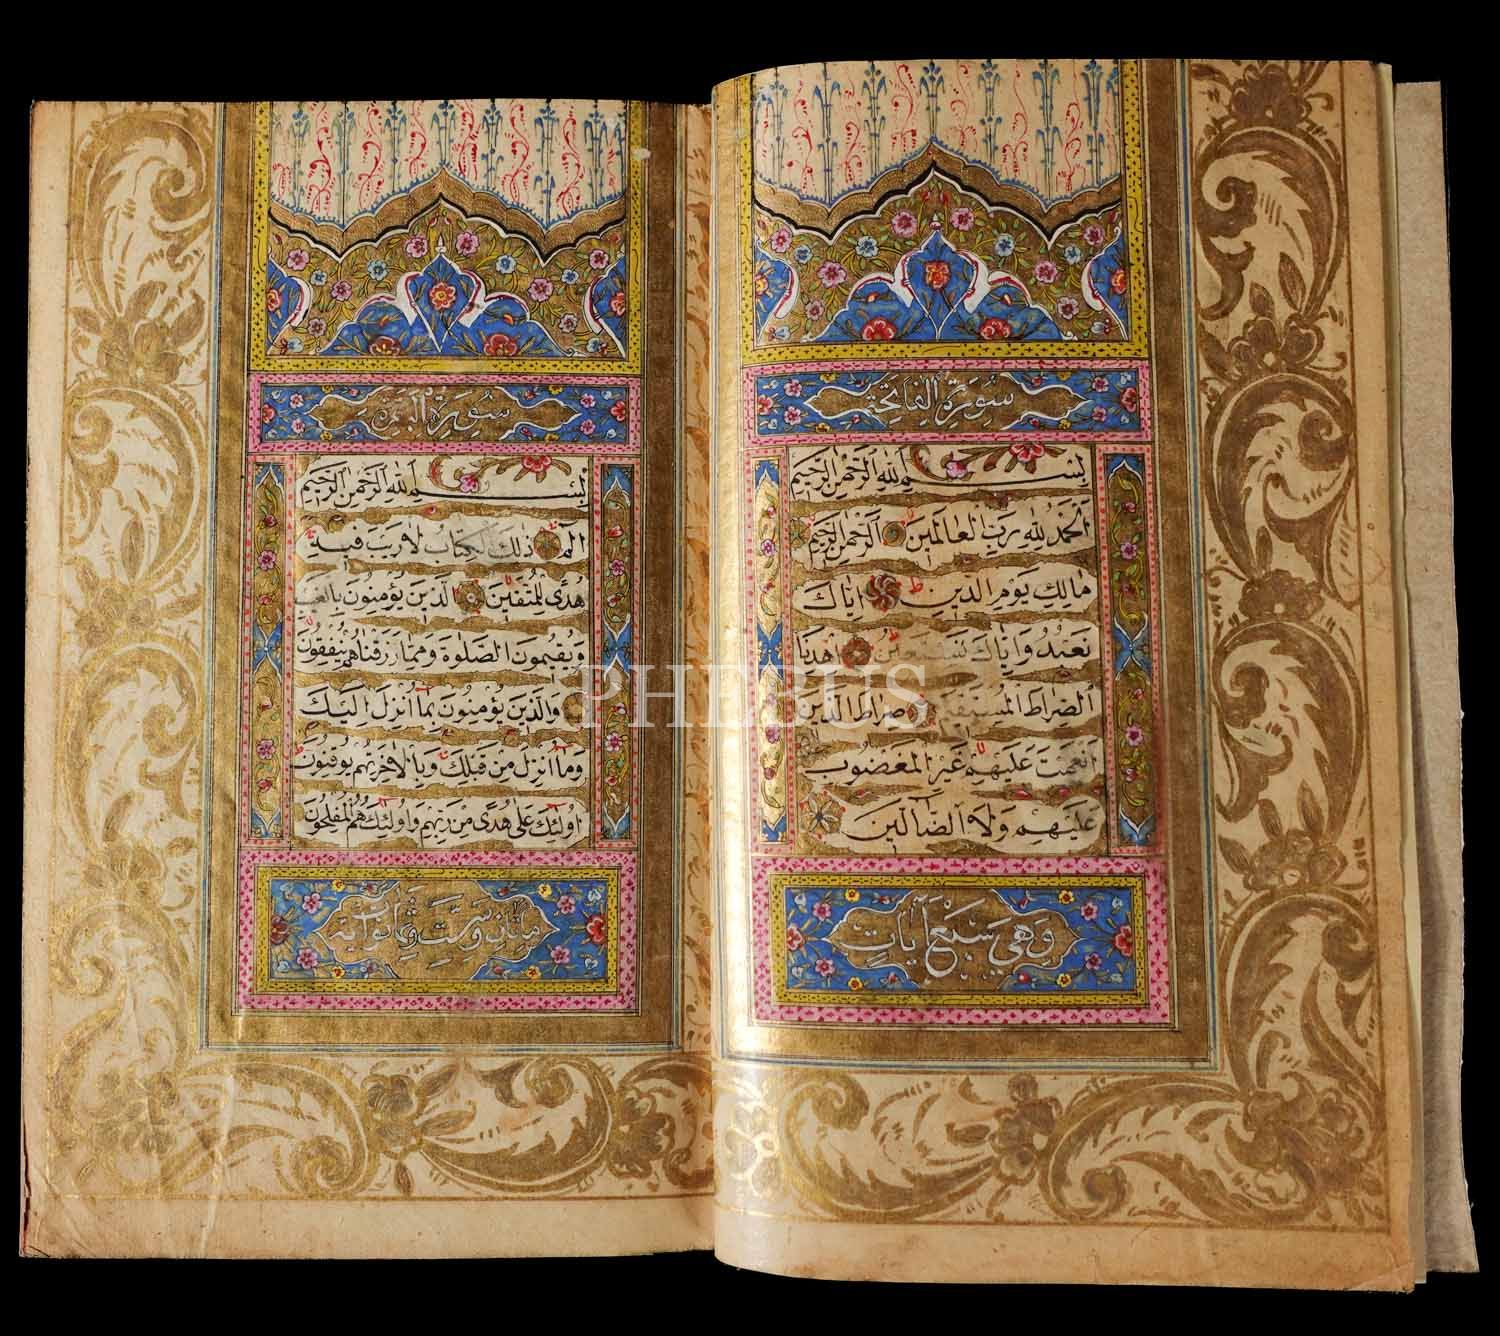 سُورَةُ الفَاتِحَة
بِسْمِ اللهِ الرَّحْمنِ الرَّحِيمِ
اَلْحَمْدُ لِلّٰهِ رَبِّ الْعَالَمِينَ اَلرَّحْمنِ الرَّحِيمِ
مَالِكِ يَوْمِ الدِّينِ اِيَّاكَ
نَعْبُدُ وَاِيَّاكَ نَسْتَعِينُ اِهْدِنَا
الصِّرَاطَ الْمُسْتَقِيمَ صِرَاطَ الَّذِينَ
اَنْعَمْتَ عَلَيْهِمْ غَيْرِ الْمَغْضُوبِ
عَلَيْهِمْ وَلَا الضَّالِّينَ
وَهِيَ سَبْعُ آيَاتٍ
سُورَةُ الْبَقَرَة
بِسْمِ اللهِ الرَّحْمنِ الرَّحِيمِ
الٓمٓ ذٰلِكَ الْكِتَابُ لَا رَيْبَ فِيهِ
هُدًى لِلْمُتَّقِينَ اَلَّذِينَ يُؤْمِنُونَ بِالْغَيْبِ
وَيُقِيمُونَ الصَّلٰوةَ وَمِمَّا رَزَقْنَاهُمْ يُنْفِقُونَ
وَالَّذِينَ يُؤْمِنُونَ بِمَا اُنْزِلَ اِلَيْكَ
وَمَا اُنْزِلَ مِنْ قَبْلِكَ وَبِالْاٰخِرَةِ هُمْ يُوقِنُونَ
اُولٰئِكَ عَلٰى هُدًى مِنْ رَبِّهِمْ وَاُولٰئِكَ هُمُ الْمُفْلِحُونَ
مائتان وست وثمانون آية
PHEBUS